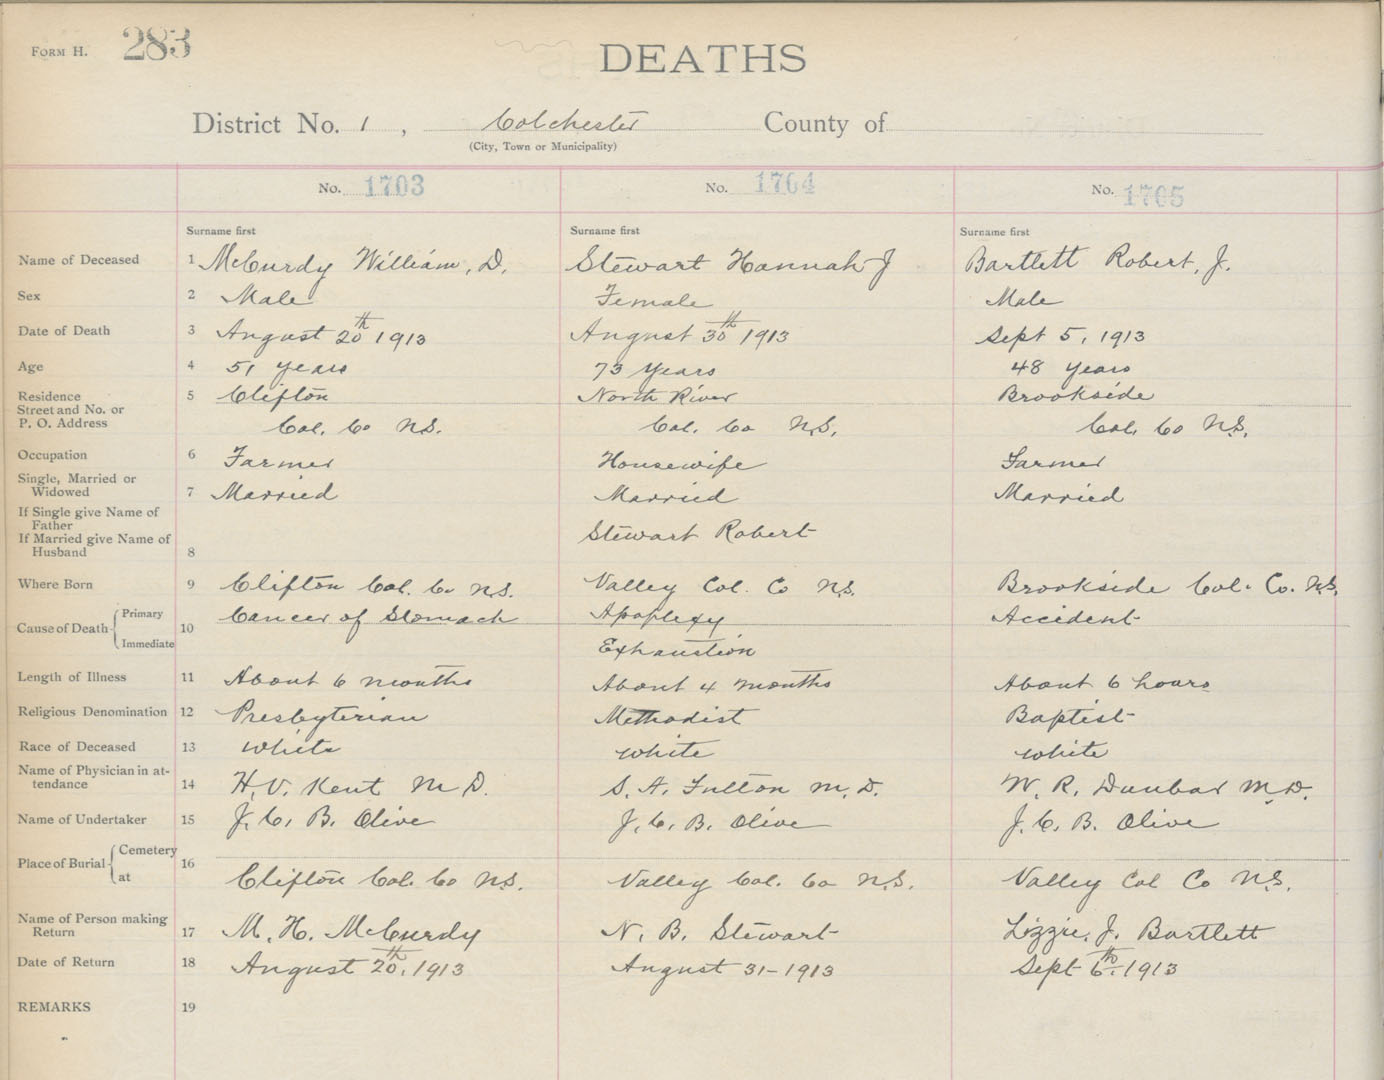 FORM H. 283
DEATHS
District No. 1, Colchester County of
(City, Town or Municipality)
No. 1703 No. 1704 No. 1705
Surname first Surname first Surname first
Name of Deceased 1 McCurdy William, D. Stewart Hannah J Bartlett Robert, J.
Sex 2 Male Female Male
Date of Death 3 August 20th 1913 August 30th 1913 Sept 5, 1913
Age 4 51 years 73 Years 48 years
Residence 5 Clifton North River Brookside
Street and No. or
P. O. Address Col. Co N.S. Col. Co N.S. Col. Co N.S.
Occupation 6 Farmer Housewife Farmer
Single, Married or
Widowed 7 Married Married Married
If Single give Name of
Father
Stewart Robert
If Married give Name of
Husband 8
Where Born 9 Clifton Col. Co N.S. Valley Col. Co N.S. Brookside Col. Co. N.S.
Cause of Death Primary 10 Cancer of Stomach Apoplexy Accident
Immediate Exhaustion
Length of Illness 11 About 6 months About 4 months About 6 hours
Religious Denomination 12 Presbyterian Methodist Baptist
Race of Deceased 13 White White White
Name of Physician in at-
tendance 14 H. V. Kent M D. S. A. Fulton M. D. W. R. Dunbar M. D.
Name of Undertaker 15 J. C. B. Olive J. C. B. Olive J. C. B. Olive
Place of Burial Cemetery 16
at Clifton Col. Co N.S. Valley Col. Co N.S. Valley Col Co N.S.
Name of Person making
Return 17 M. H. McCurdy N. B. Stewart Lizzie. J. Bartlett
Date of Return 18 August 20th, 1913 August 31-1913 Sept 6th. 1913
REMARKS 19